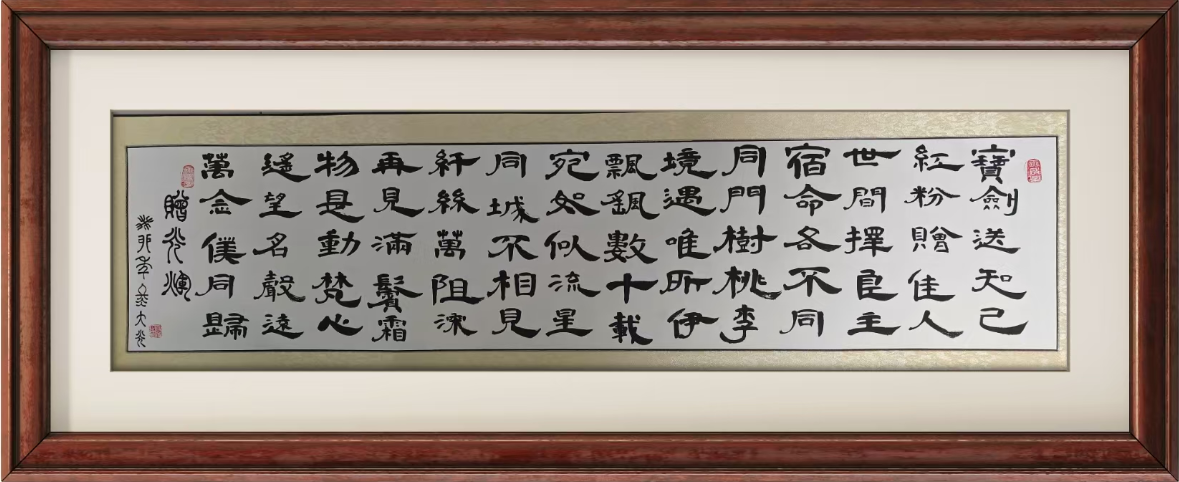 寶劍送知己
紅粉贈佳人
世間擇良主
宿命各不同
同門樹桃李
境遇唯所伊
飄數十載
宛如似流星
同城不相見
絲萬阻深
再見滿鬢霜
物是動梵心
遙望名聲遠
萬念僕同歸
贈
癸卯年